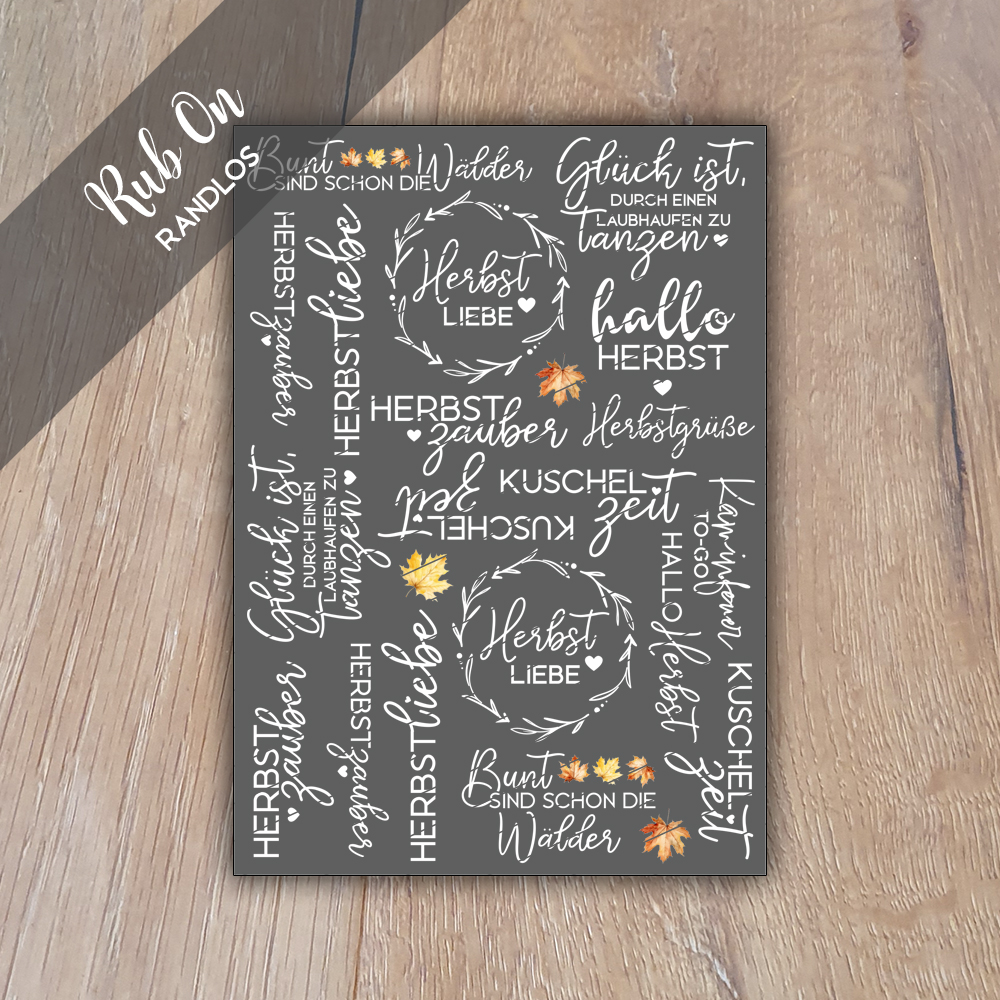 Rub On
RANDLOS
Bunt
SIND SCHON DIE Wälder
Glück ist,
DURCH EINEN
LAUBHAUFEN ZU
tanzen
HERBST
zauber
HERBSTliebe
Herbst
LIEBE
hallo
HERBST
HERBST
zauber
Herbstgrüße
KUSCHEL
zeit
KUSCHEL
zeit
Glück ist,
DURCH EINEN
LAUBHAUFEN ZU
tanzen
TO-GO
HALLO Herbst
Herbst
LIEBE
HERBST
zauber
HERBST
zauber
HERBSTliebe
KUSCHEL
zeit
Bunt
SIND SCHON DIE
Wälder